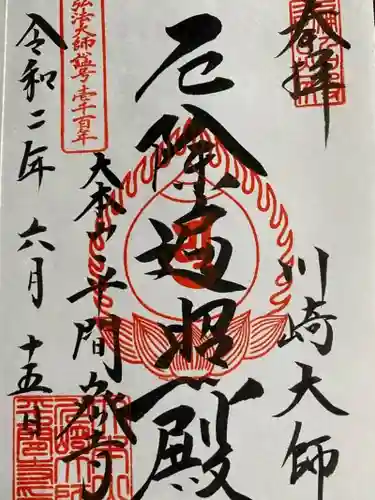 奉拝
川崎大師
厄除遍照殿
大本山平間寺
弘法大師諡号壱千百年
令和二年六月十五日